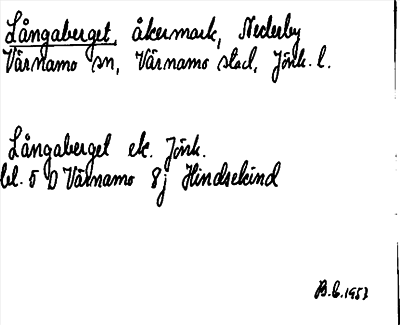 Långaberget, åkermark, Nederby
Värnamo sn, Värnamo stad, Jönk. l.
Långaberget ek. Jönk.
bl. 5 D Värnamo 8j Hindsekind
B.E. 1953